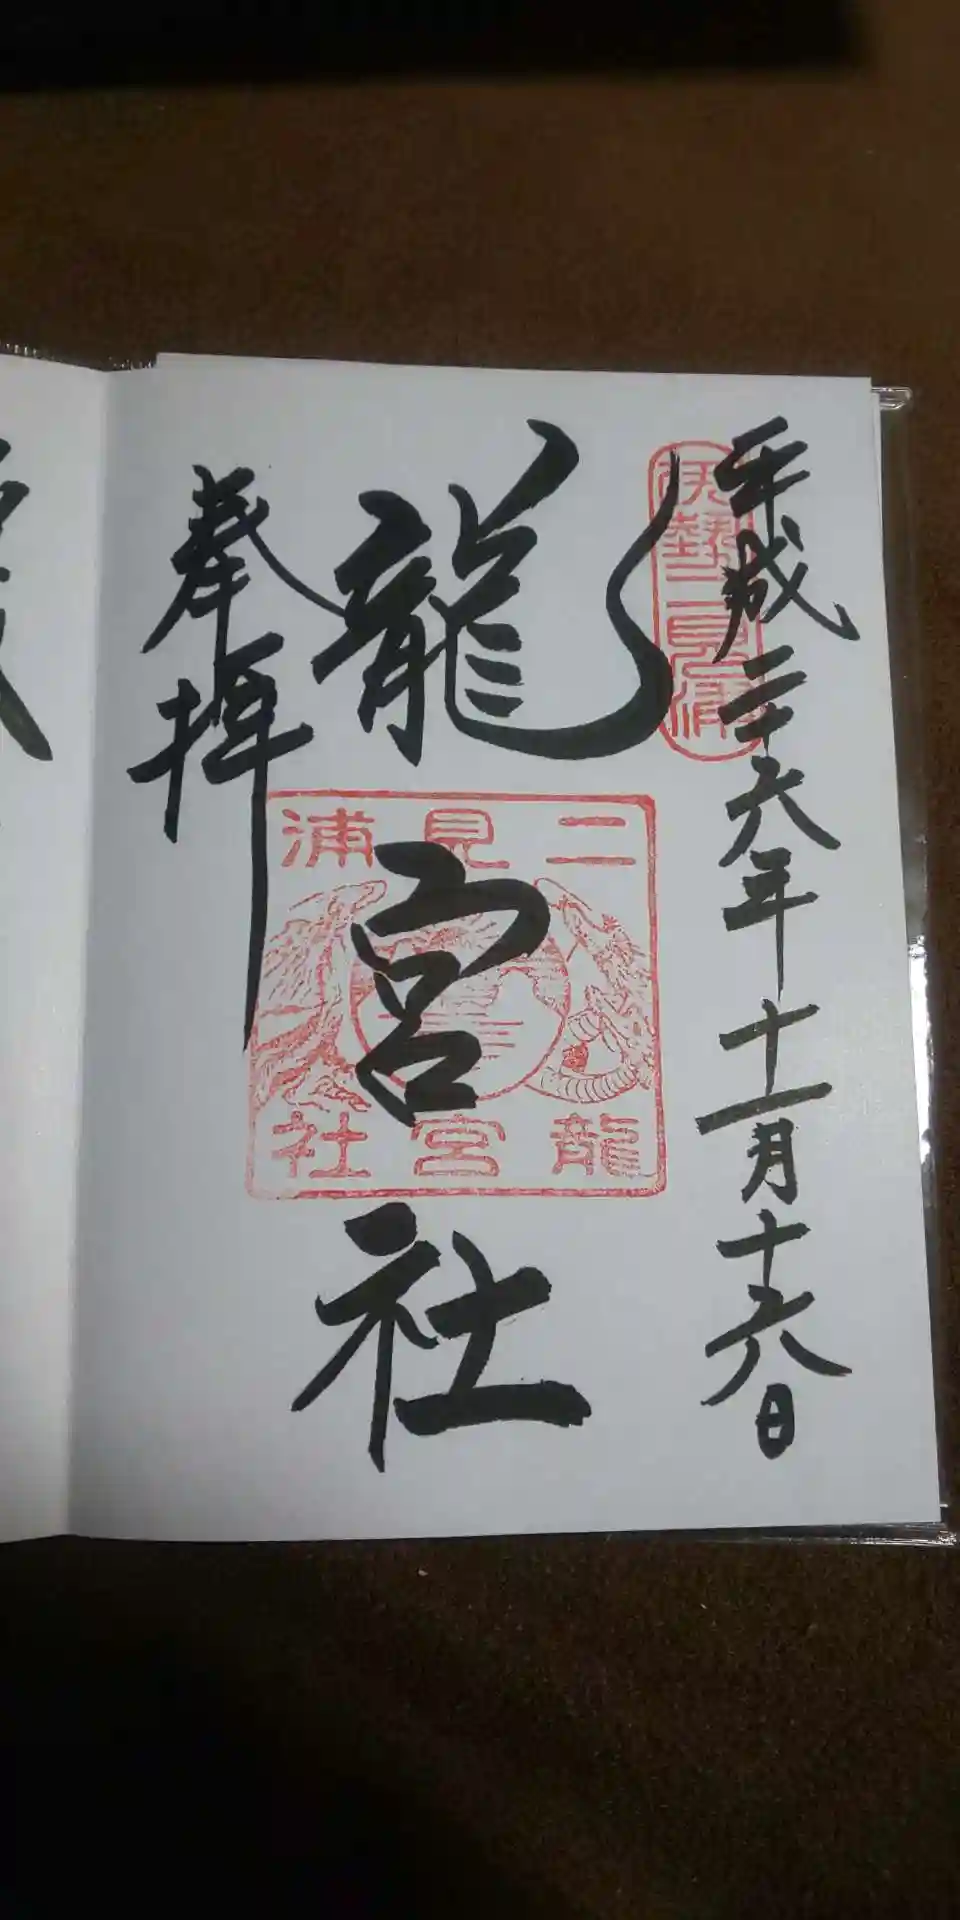 平成二十六年十一月十六日
伊勢二見浦
龍宮社
二見浦
龍宮社
奉拝